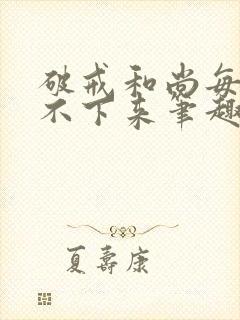 破戒和尚每
不下来笔趣
夏寿康